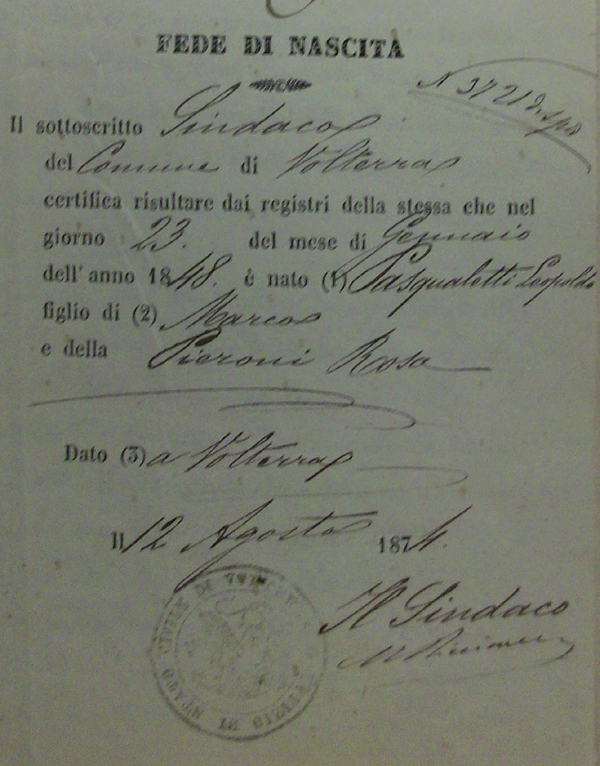 FEDE DI NASCITA
N 3721
Il sottoscritto Sindaco
del Comune di Volterra
certifica risultare dai registri della stessa che nel
giorno 23. del mese di Gennaio
dell' anno 1848. è nato (1) Pasqualetti Leopoldo
figlio di (2) Marco
e della Pieroni Rosa
Dato (3) a Volterra
Il 12 Agosto 1874.
Il Sindaco
STATO CIVILE DI